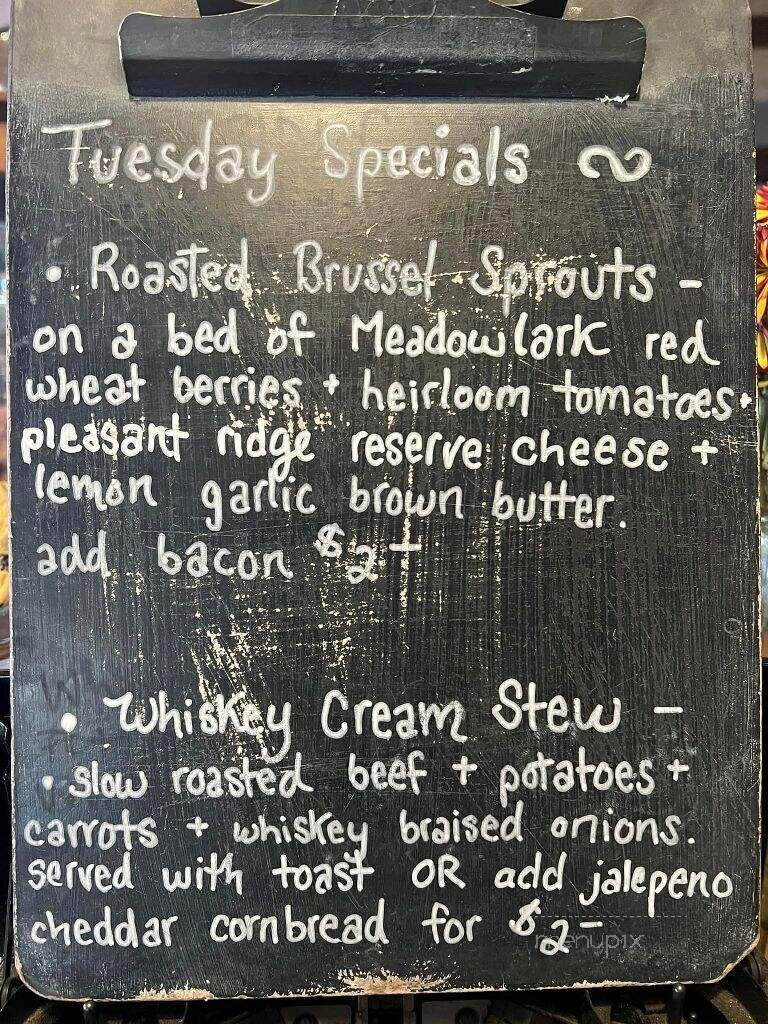 Tuesday Specials
• Roasted Brussel Sprouts -
on a bed of Meadowlark red
wheat berries + heirloom tomatoes +
pleasant ridge reserve cheese +
lemon garlic brown butter.
add bacon $2-
• Whiskey Cream Stew -
• slow roasted beef + potatoes +
carrots + whiskey braised onions.
served with toast OR add jalepeno
cheddar cornbread for $2-
menupix